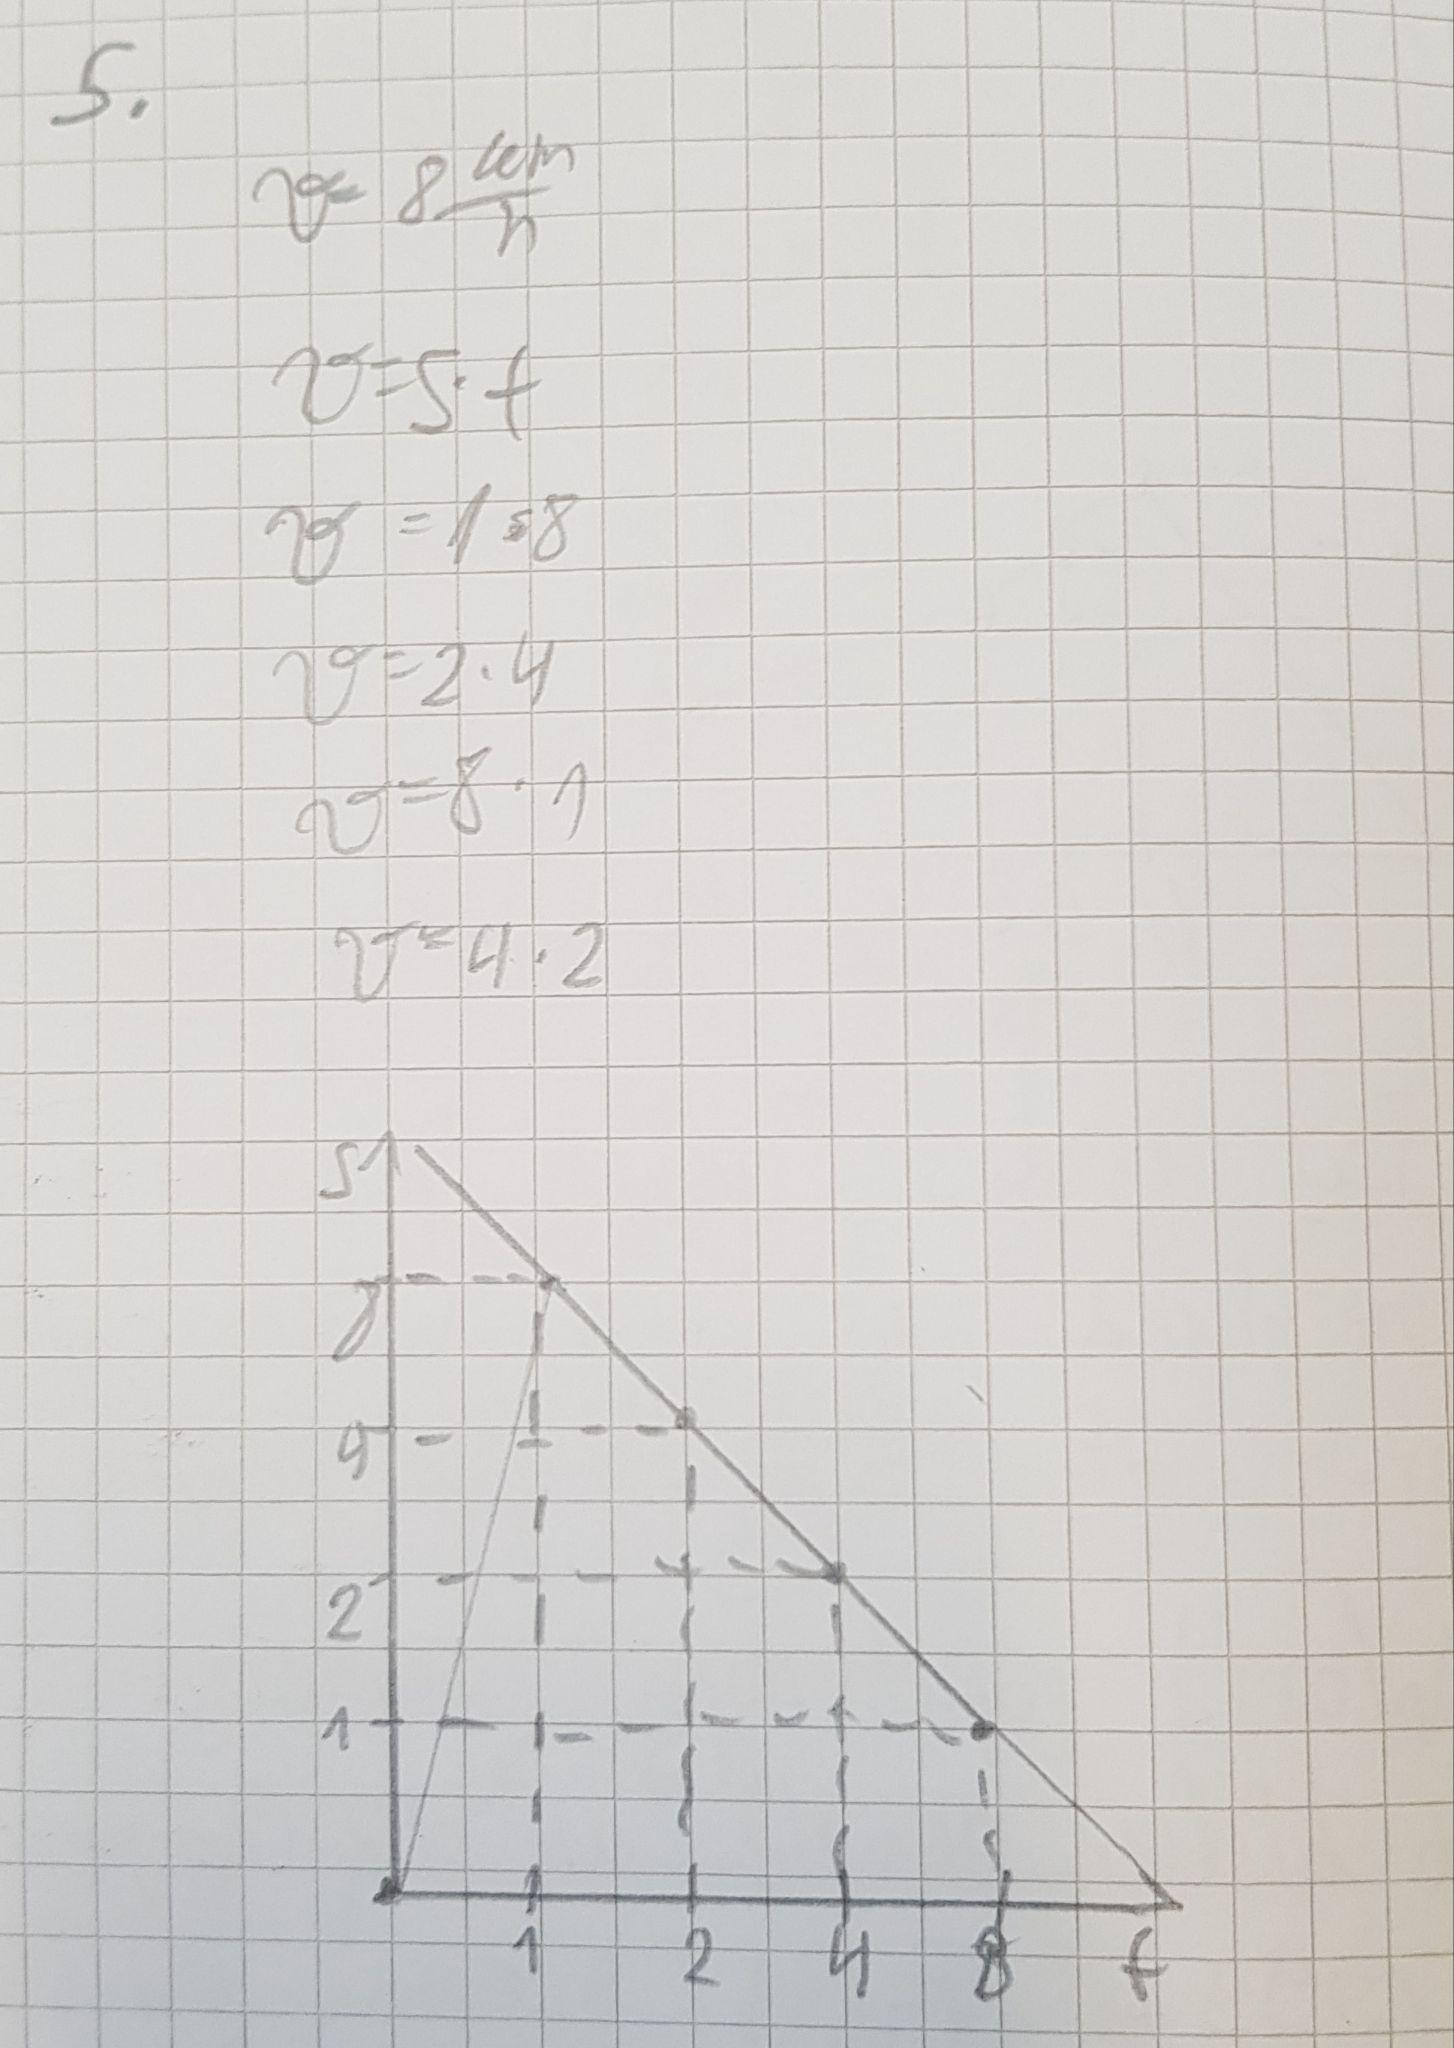 5.
v= 8 km/h
v=s·t
v=1·8
v=2·4
v=8·1
v=4·2
s
8
4
2
1
1 2 4 8 t